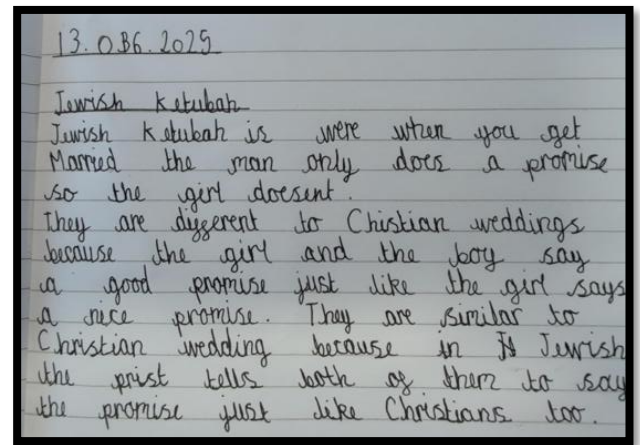 13.OB6.2025
Jewish Ketubah
Jewish Ketubah is were when you get
Married the man only does a promise
so the girl doesent.
They are dyfferent to Chistian weddings
because the girl and the boy say
a good promise just like the girl says
a nice promise. They are similar to
Christian wedding because in Jewish
the prist tells both of them to say
the promise just like Christians too.